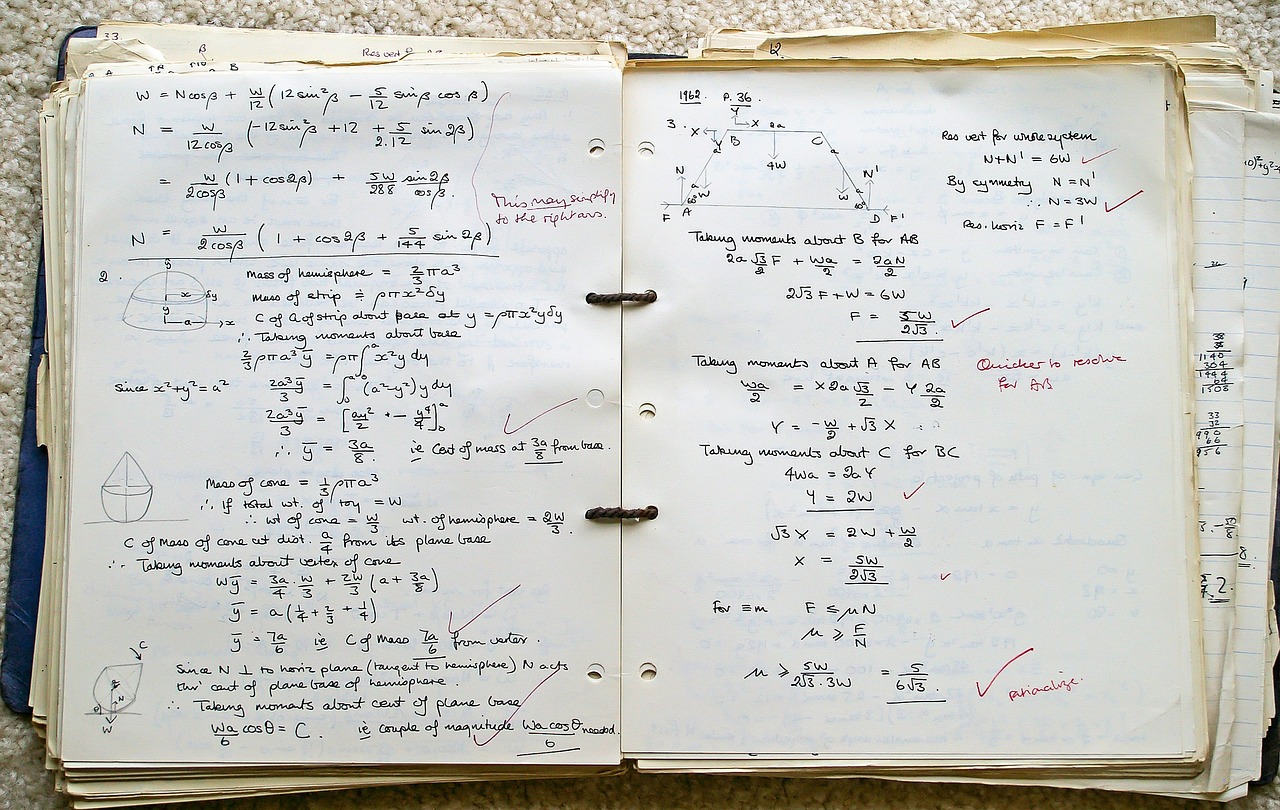 33.
β
Res vert
B
W = Ncosβ + W/12 (12sin²β − 5/12 sinβ cosβ)
N = W/12cosβ (−12sin²β + 12 + 5/2.12 sin2β)
= W/2cosβ (1 + cos2β) + 5W/288 sin2β/cosβ.
This may simplify
to the right ans.
N = W/2cosβ (1 + cos2β + 5/144 sin2β)
2.
y
x δy
y
a x
Mass of hemisphere = 2/3 πa³
Mass of strip ≑ ρπx²δy
C of G of strip about base at y = ρπx²yδy
∴ Taking moments about base
2/3 ρπa³ȳ = ρπ∫₀ᵃ x²y dy
since x²+y²=a² 2a³ȳ/3 = ∫₀ᵃ (a²−y²)y dy
2a³ȳ/3 = [ay²/2 − y⁴/4]₀ᵃ
∴ ȳ = 3a/8 ie Cent of mass at 3a/8 from base.
Mass of cone = 1/3 ρπa³
∴ If total wt. of toy = W
∴ wt of cone = W/3 wt. of hemisphere = 2W/3.
C of Mass of cone at dist. a/4 from its plane base
∴ Taking moments about vertex of cone
Wȳ = 3a/4 . W/3 + 2W/3 (a + 3a/8)
ȳ = a(1/4 + 2/3 + 1/4)
ȳ = 7a/6 ie C of Mass 7a/6 from vertex.
C
N
θ
W
Since N ⊥ to horiz plane (tangent to hemisphere) N acts
thro' cent of plane base of hemisphere.
∴ Taking moments about cent of plane base
Wa/6 cosθ = C. ie couple of magnitude Wa cosθ/6 needed.
12.
1962. P. 36.
Y
3. X X 2a
Y B C
a 4W a
N N'
a W W a
60° 60°
F A D F'
Res vert for whole system
N+N' = 6W
By symmetry N = N'
∴ N = 3W
Res. horiz F = F'
Taking moments about B for AB
2a √3/2 F + Wa/2 = 2aN/2
2√3 F + W = 6W
F = 5W/2√3.
Taking moments about A for AB
Quicker to resolve
for AB
Wa/2 = X 2a √3/2 − Y 2a/2
Y = −W/2 + √3 X
Taking moments about C for BC
4Wa = 2aY
Y = 2W
√3 X = 2W + W/2
X = 5W/2√3
For ≡m F ≤ μN
μ ≥ F/N
μ ≥ 5W/2√3.3W = 5/6√3.
rationalize.
38
38
1140
304
1444
64
1508
33
32
990
66
956